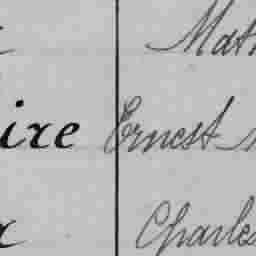 Math
ire Ernest
Charles